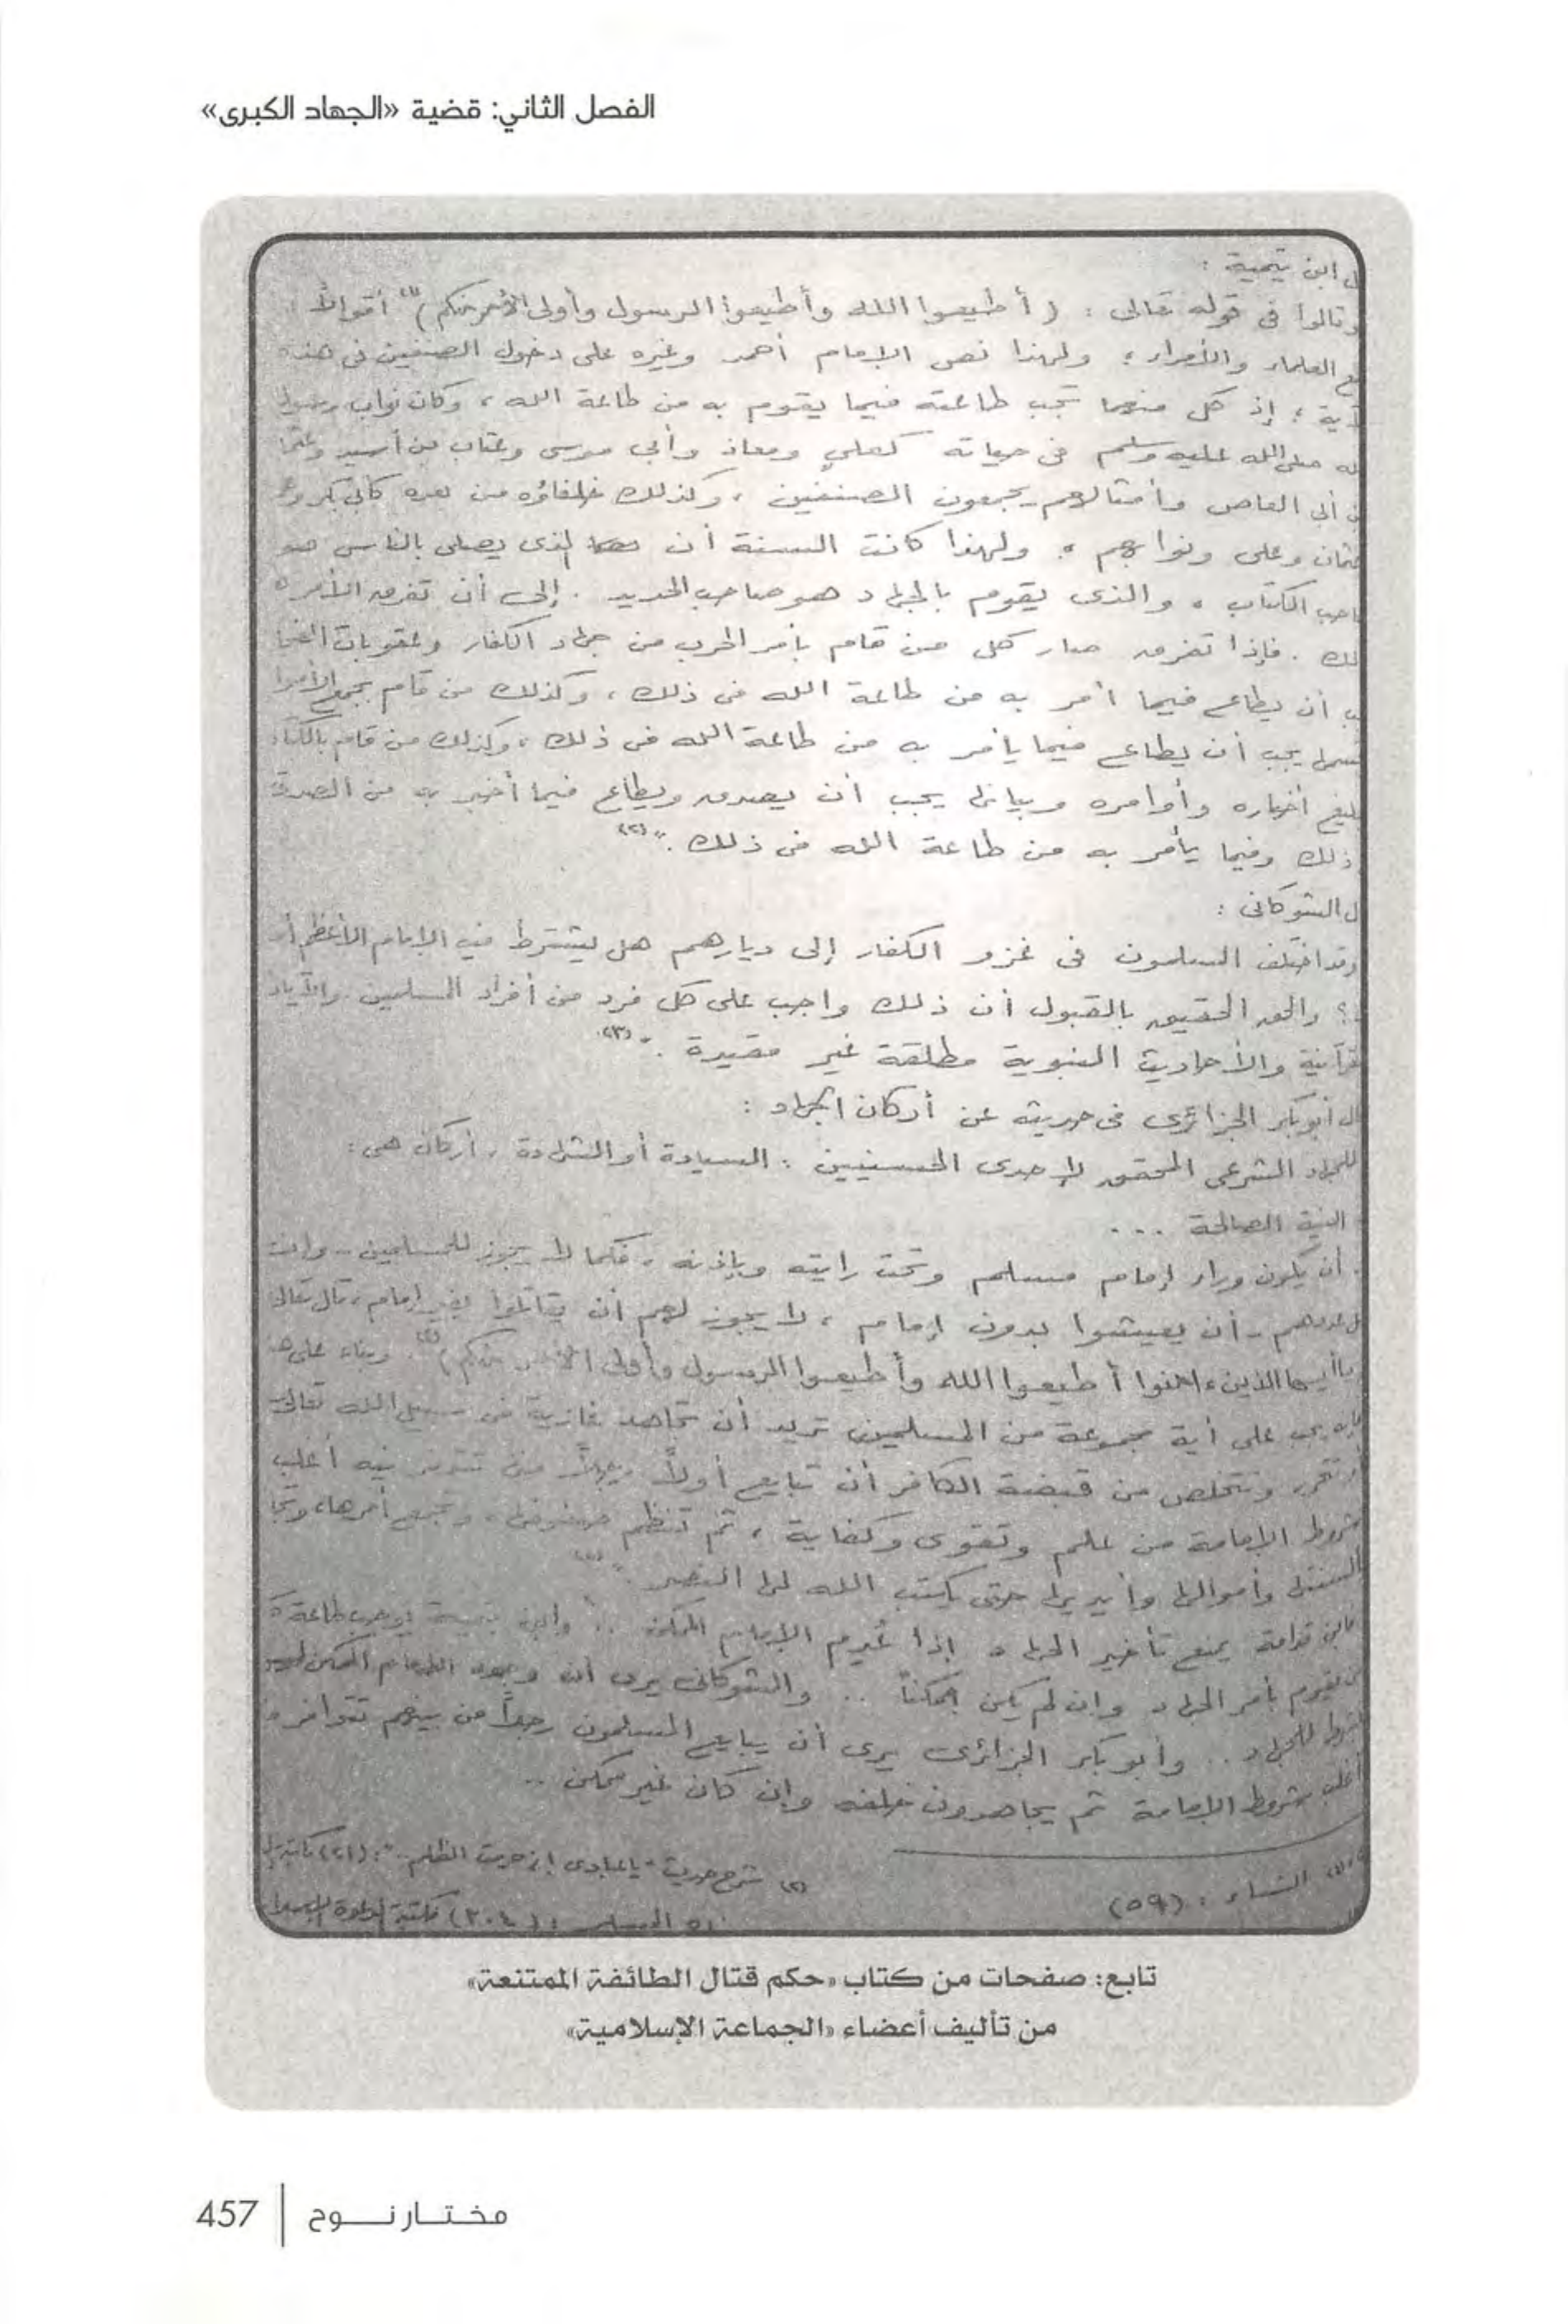 الفصل الثاني: قضية «الجهاد الكبرى»
ل ابن تيمية :
وقالوا فى قوله تعالى : ( أطيعوا الله وأطيعوا الرسول وأولى الأمر منكم )(١) أقوالاً :
ع العلماء والأمراء ؛ ولهذا نص الإمام أحمد وغيره على دخول الصنفين فى هذه
آية ؛ إذ كل منهما تجب طاعته فيما يقوم به من طاعة الله ، وكان نواب رسول
له صلى الله عليه وسلم فى حياته كعلي ومعاذ وأبى موسى وعتاب بن أسيد وعثما
ن أبى العاص وأمثالهم يجمعون الصنفين ، وكذلك خلفاؤه من بعده كأبى بكر وع
ثمان وعلى ونوابهم . ولهذا كانت السنة أن الذى يصلى بالناس هو
احب الكتاب ، والذى يقوم بالجهاد هو صاحب الحديد . إلى أن تفرق الأمر
لك . فإذا تفرق صار كل من قام بأمر الحرب من جهاد الكفار وعقوبات الفجا
ب أن يطاع فيما أمر به من طاعة الله فى ذلك ، وكذلك من قام بجمع الأموا
قسمها يجب أن يطاع فيما يأمر به من طاعة الله فى ذلك ، وكذلك من قام بالكتاب
بليغ أخباره وأوامره وبيانها يجب أن يصدق ويطاع فيما أخبر به من الصدق
ذلك وفيما يأمر به من طاعة الله فى ذلك . "(٢)
ل الشوكانى :
وقد اختلف المسلمون فى غزو الكفار إلى ديارهم هل يشترط فيه الإمام الأعظم أم
؟ والحق الحقيق بالقبول أن ذلك واجب على كل فرد من أفراد المسلمين . والآيات
قرآنية والأحاديث النبوية مطلقة غير مقيدة . "(٣)
ال أبو بكر الجزائرى فى حديثه عن أركان الجهاد :
للجهاد الشرعى المحقق لإحدى الحسنيين : السيادة أو الشهادة ، أركان هى :
النية الصالحة ...
. أن يكون وراء إمام مسلم وتحت رايته وبإذنه ، فكما لا يجوز للمسلمين - وإن
ل عددهم - أن يعيشوا بدون إمام ، لا يجوز لهم أن يقاتلوا بغير إمام ، قال تعالى
ياأيها الذين ءامنوا أطيعوا الله وأطيعوا الرسول وأولى الأمر منكم )(٤) . وبناء على هذ
إنه يجب على أية مجموعة من المسلمين تريد أن تجاهد غازية فى سبيل الله تعالى
أو تتحرر وتتخلص من قبضة الكافر أن تبايع أولاً رجلاً من تتوفر فيه أغلب
شروط الإمامة من علم وتقوى وكفاية ، ثم تنظم صفوفها ، وتجمع أمرها ، وتجا
ألسنتها وأموالها وأيديها حتى يكتب الله لها النصر . "(٥)
فابن قدامة يمنع تأخير الجهاد إذا عُدِم الإمام الممكن .. وابن تيمية يوجب طاعة
من يقوم بأمر الجهاد وإن لم يكن ممكناً .. والشوكانى يرى أن وجود الإمام الممكن ليس
شرطا للجهاد .. وأبو بكر الجزائرى يرى أن يبايع المسلمون رجلاً من بينهم تتوافر فيه
أغلب شروط الإمامة ثم يجاهدون خلفه وإن كان غير ممكن ..
النساء : (٥٩)
(٢) شرح حديث " ياعبادى إنى حرمت الظلم .." : (٢١)
المسلم : (٣٠٤) مكتبة الدعوة
تابع: صفحات من كتاب «حكم قتال الطائفة الممتنعة»
من تأليف أعضاء «الجماعة الإسلامية»
مختار نوح | 457